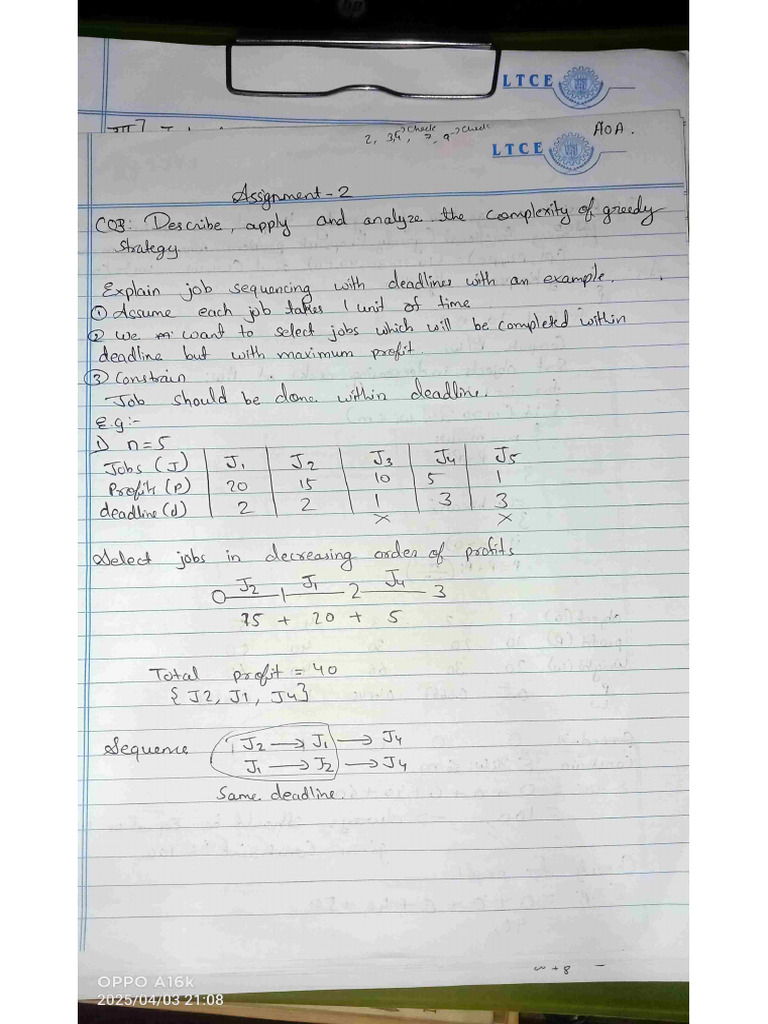 LTCE
2, 3,4 → check, 7, 9 → check
AOA.
LTCE
Assignment-2
CO3: Describe, apply and analyze the complexity of greedy
strategy.
Explain job sequencing with deadlines with an example.
① Assume each job takes 1 unit of time
② We want to select jobs which will be completed within
deadline but with maximum profit.
③ Constrain
Job should be done within deadline.
E.g:-
1) n=5
Jobs (J) J1 J2 J3 J4 J5
Profits (P) 20 15 10 5 1
deadline (d) 2 2 1 3 3
x x
Select jobs in decreasing order of profits
0 J2 1 J1 2 J4 3
15 + 20 + 5
Total profit = 40
{J2, J1, J4}
Sequence J2 → J1 → J4
J1 → J2 → J4
Same deadline.
OPPO A16k
2025/04/03 21:08